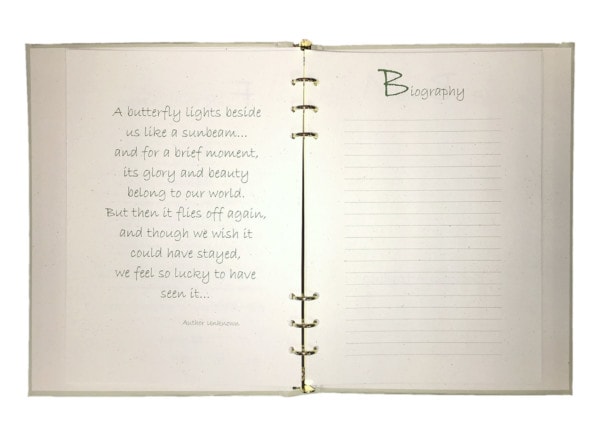 A butterfly lights beside
us like a sunbeam...
and for a brief moment,
its glory and beauty
belong to our world.
But then it flies off again,
and though we wish it
could have stayed,
we feel so lucky to have
seen it...
Author Unknown
Biography